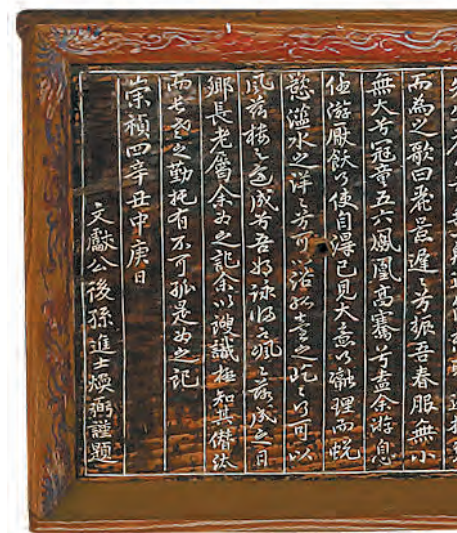 而為之歌曰景遲〻兮振吾春服無小
無大兮冠童五六鳳凰高騫兮盍余游息
優游厭飫乃使自得已見大意乃融理而蛻
慾濫水之洋〻兮可浴臺之屹〻兮可以
風樓之成兮吾將詠歸落成之日
鄉長老屬余為之記余以謏識極知其僭汰
而長老之勤托有不可孤是為之記
崇禎四辛丑中庚日
文獻公後孫進士煥弼謹題